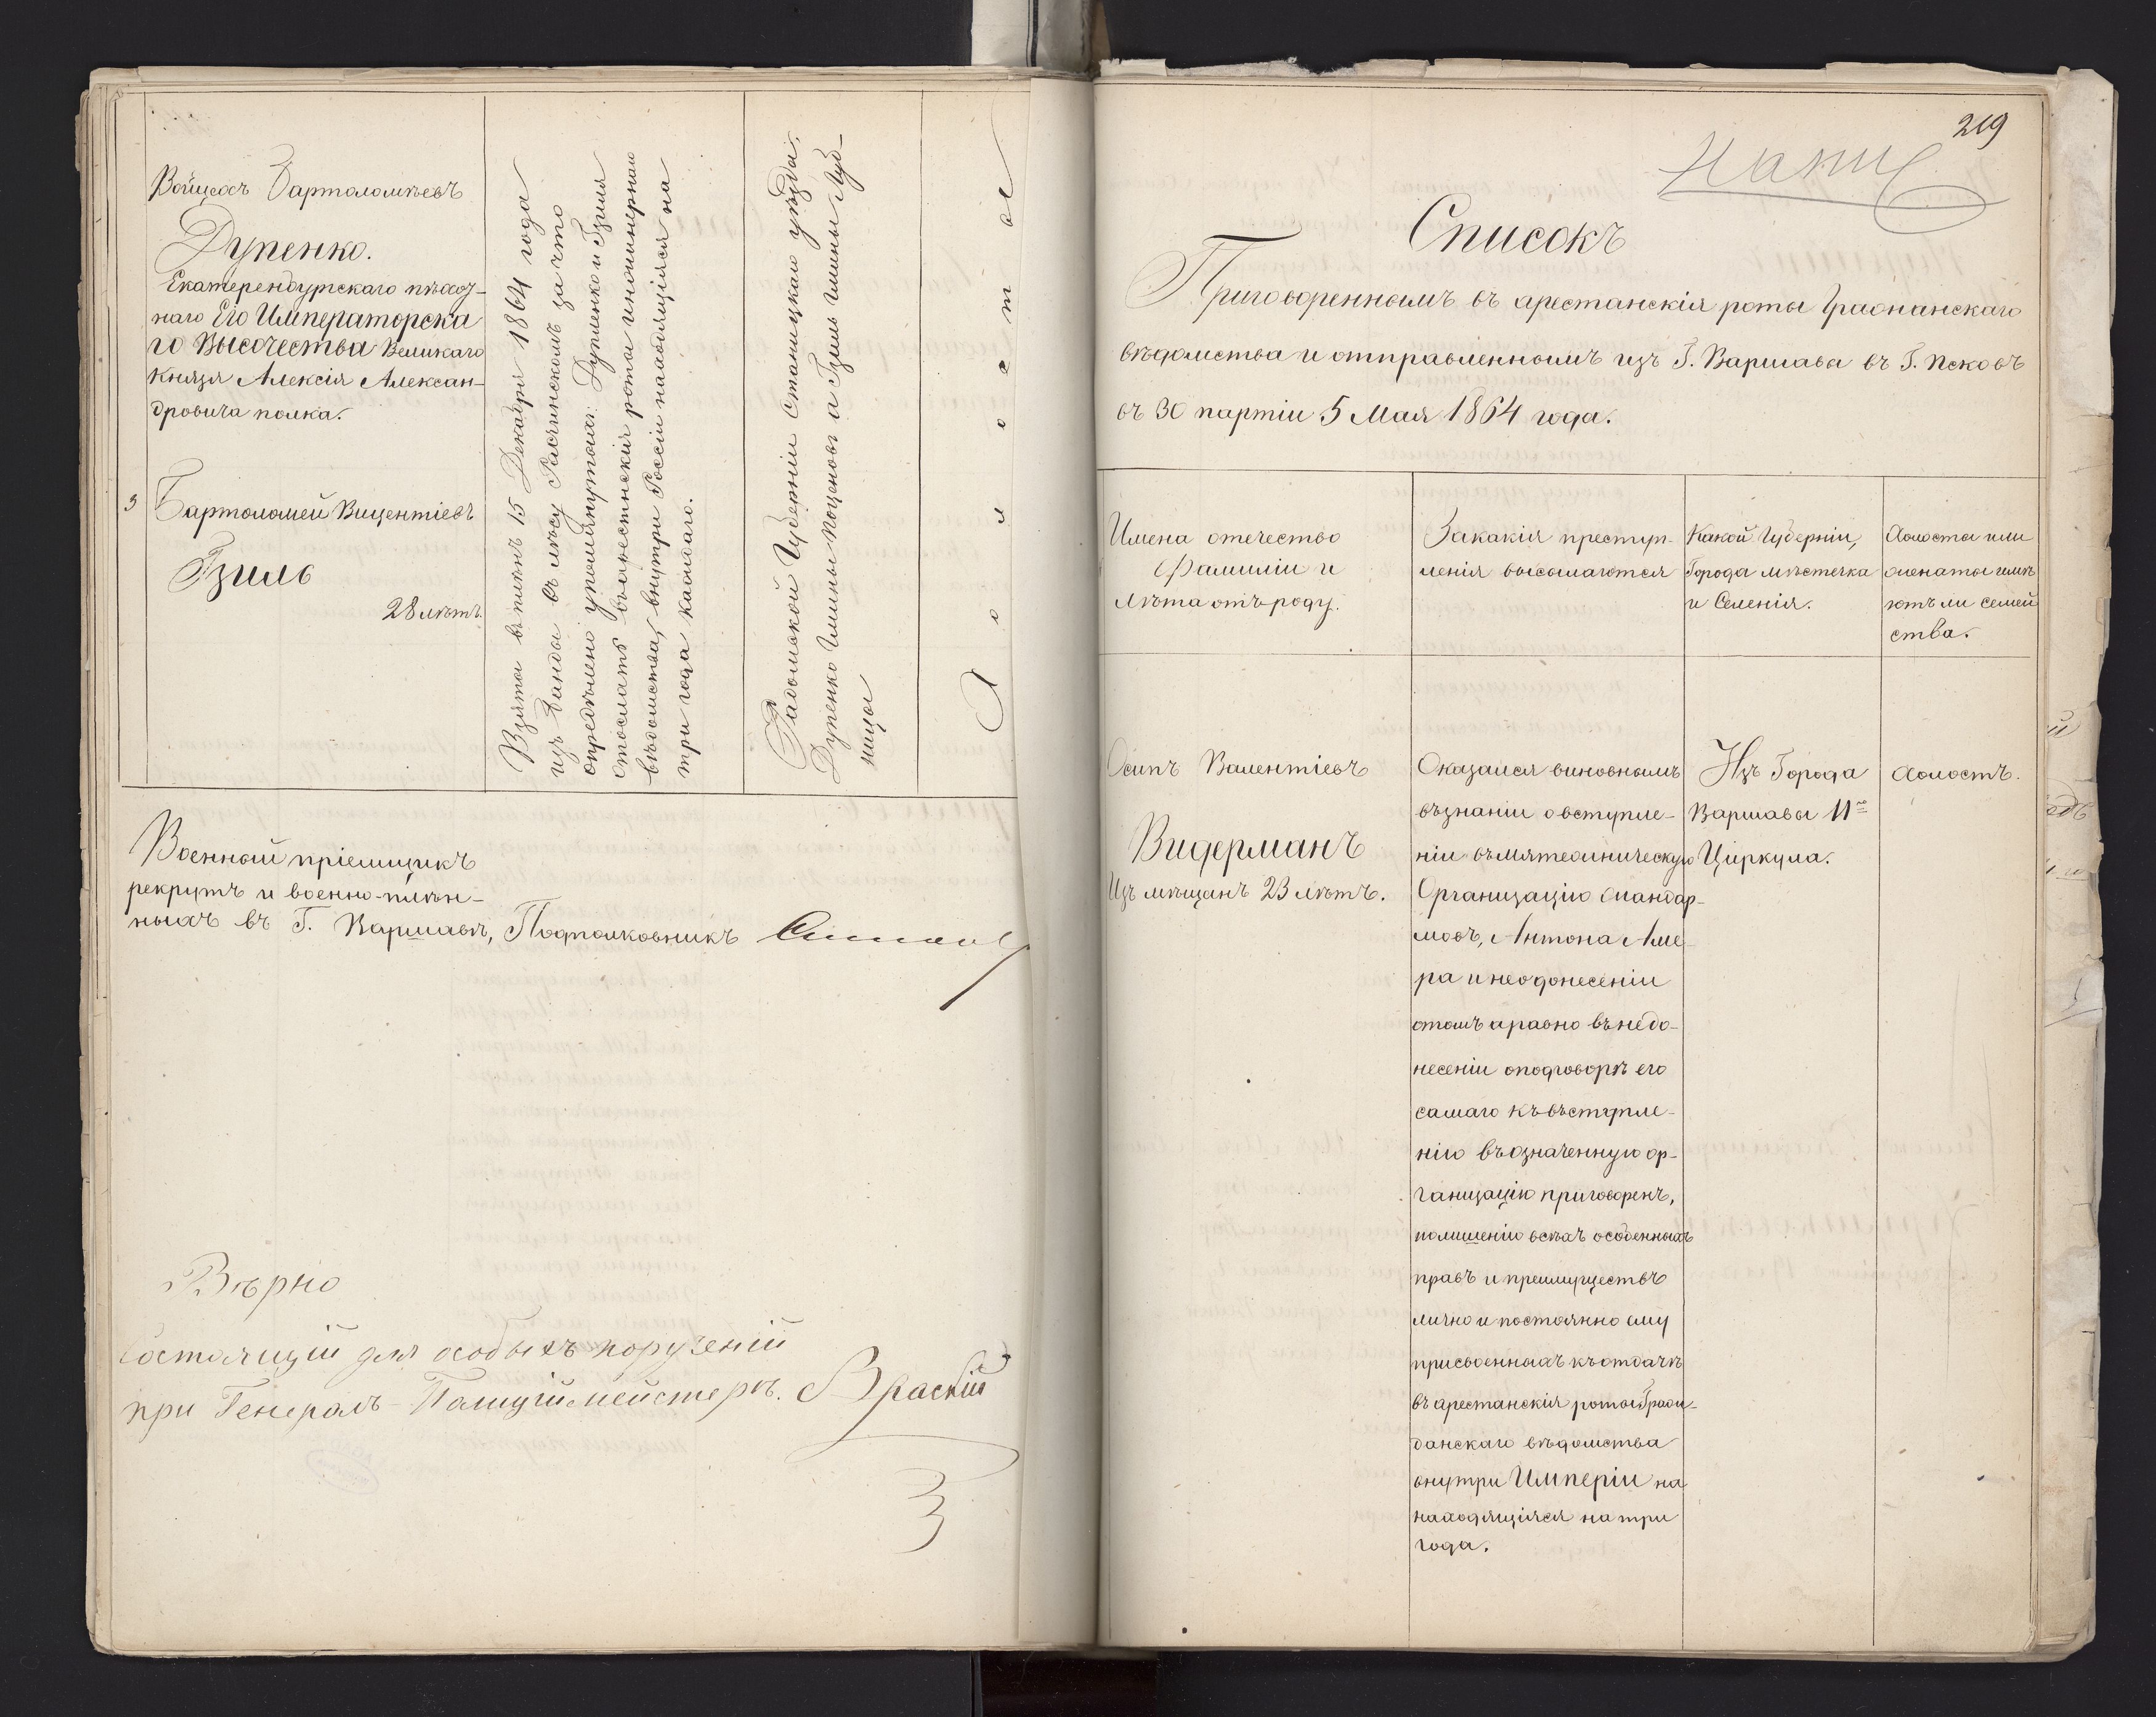 Войцѣхъ Бартоломѣевъ
Дупенко.
Екатеренбурскаго пѣхот-
наго Его Императорска
го Высочества Великаго
Князя Алексія Алексан-
дровича полка.
3 Бартоломей Вицентіевъ
Гзиль
28 лѣтъ.
Взяты въ плѣнъ 15 Декабря 1864 года
изъ Банды въ лѣсу Расчинскомъ за что
опредѣлено упомянутыхъ: Дупенко и Гзиля
отослать въ арестанскія роты инженернаго
вѣдомства, внутри Россіи находящіяся на
три года каждаго.
Радомской Губерніи Станицкаго уѣзда.
Дупенко Гмины Поценовъ а Гзиль гмины Луб-
ницы
Холостое
Военный пріемщикъ
рекрутъ и военно-плѣн-
ныхъ въ Г. Варшавѣ, Подполковникъ
Вѣрно
Состоящій для особыхъ порученій
при Генералъ-Полиціймейстерѣ. Враскій
219
Списокъ
Приговоренномъ въ арестанскія роты Гражданскаго
вѣдомства и отправленномъ изъ Г. Варшавы въ Г. Псковъ
въ 30 партіи 5 Мая 1864 года.
Имена отечество
Фамиліи и
лѣта отъ роду.
За какія преступ-
ленія высылаются
Какой Губерніи,
Города мѣстечка
и Селенія.
Холосты или
женаты имѣ
ютъ ли семей
ства.
Осипъ Валентіевъ
Видерманъ
Изъ мѣщанъ 23 лѣтъ.
Оказался виновнымъ
въ знаніи о вступле-
ніи въ мятежническую
Организацію жандар-
мовъ, Антона Аме-
ра и недонесеніи
о томъ а равно въ недо-
несеніи о подговорѣ его
самаго къ вступле-
нію въ означенную ор-
ганизацію приговоренъ,
по лишеніи всѣхъ особенныхъ
правъ и преимуществъ
лично и постоянно ему
присвоенныхъ къ отдачѣ
въ арестанскія роты Граж-
данскаго вѣдомства
внутри Имперіи на
находящіяся на три
года.
Изъ Города
Варшавы 11го
Циркула.
Холостъ.